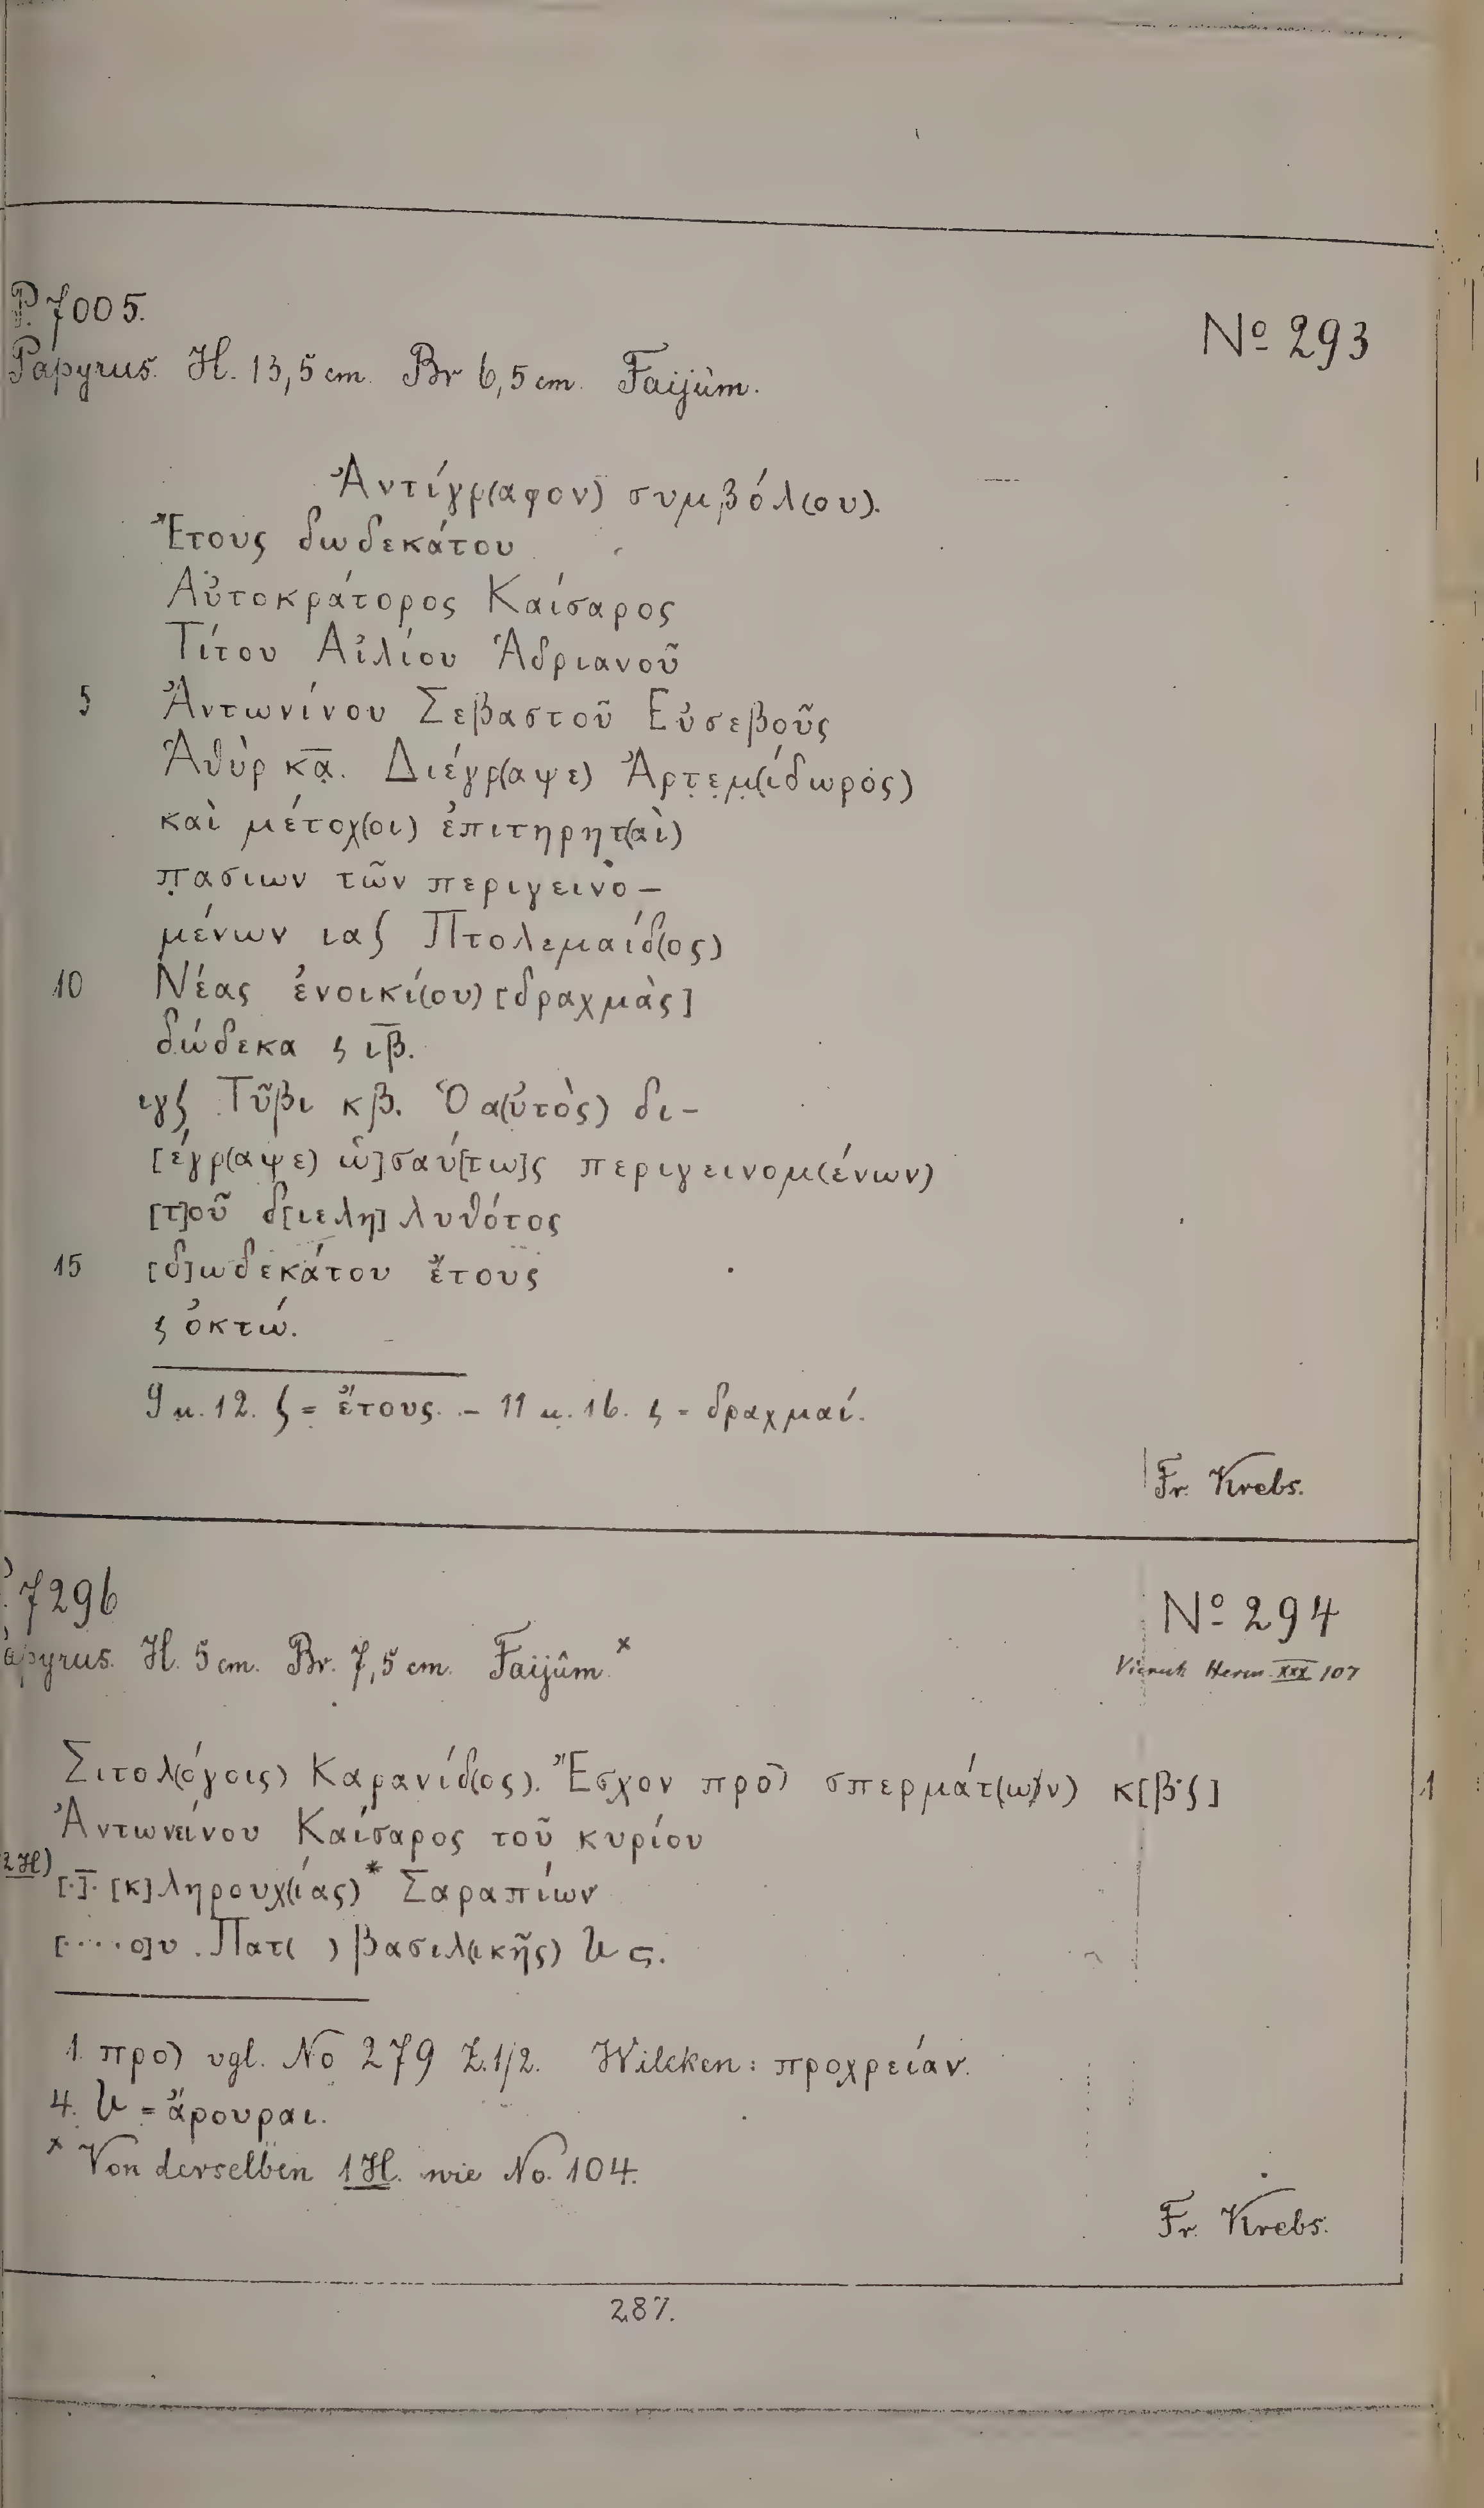 P. 7005.
No 293
Papyrus. H. 13,5 cm. Br 6,5 cm. Faijûm.
Ἀντίγρ(αφον) συμβόλ(ου).
Ἔτους δωδεκάτου
Αὐτοκράτορος Καίσαρος
Τίτου Αἰλίου Ἁδριανοῦ
5 Ἀντωνίνου Σεβαστοῦ Εὐσεβοῦς
Ἁθὺρ κ̅α̅. Διέγρ(αψε) Ἀρτεμ(ίδωρός)
καὶ μέτοχ(οι) ἐπιτηρητ(αὶ)
πασιων τῶν περιγεινο-
μένων ιαʃ Πτολεμαίδ(ος)
10 Νέας ἐνοικί(ου) [δραχμὰς]
δώδεκα ς ι̅β̅.
ιγʃ Τῦβι κβ. Ὁ α(ὐτὸς) δι-
[έγρ(αψε) ὡ]σαύ[τω]ς περιγεινομ(ένων)
[τ]οῦ δ[ιελη]λυθότος
15 [δ]ωδεκάτου ἔτους
ς ὀκτώ.
9 u. 12. ʃ = ἔτους. – 11 u. 16. ς = δραχμαί.
Fr. Krebs.
P. 7296
No 294
Papyrus. H. 5 cm. Br. 7,5 cm. Faijûm.×
Herm. XXX 107
Σιτολ(όγοις) Καρανίδ(ος). Ἔσχον προ) σπερμάτ(ω)ν) κ[β ʃ] 1
Ἀντωνείνου Καίσαρος τοῦ κυρίου
2 H) [.]. [κ]ληρουχ(ίας)* Σαραπίων
[....ο]υ . Πατ( ) βασιλ(ικῆς) 𐅵 ϛ.
1. προ) vgl. No 279 Z. 1/2. Wilcken: προχρείαν.
4. 𐅵 = ἄρουραι.
× Von derselben 1 H. wie No. 104.
Fr. Krebs.
287.